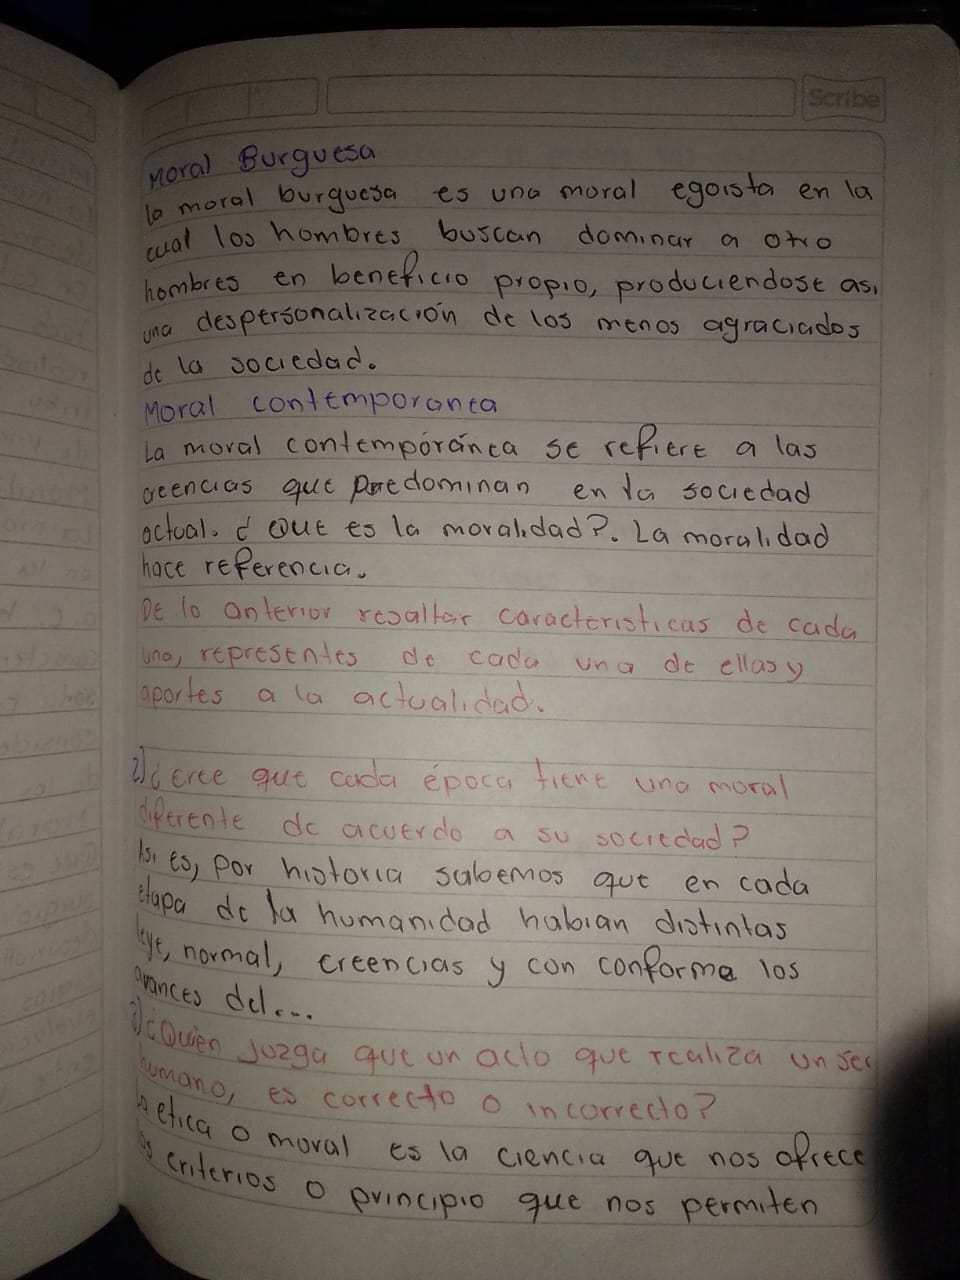 Scribe
Moral Burguesa
la moral burguesa es una moral egoista en la
cual los hombres buscan dominar a otro
hombres en beneficio propio, produciendose asi
una despersonalización de los menos agraciados
de la sociedad.
Moral contemporanea
La moral contemporánea se refiere a las
creencias que predominan en la sociedad
actual. ¿Que es la moralidad?. La moralidad
hace referencia.
De lo anterior resaltar caracteristicas de cada
una, representes de cada una de ellas y
aportes a la actualidad.
2) ¿cree que cada época tiene una moral
diferente de acuerdo a su sociedad?
Asi es, por historia sabemos que en cada
etapa de la humanidad habian distintas
leye, normal, creencias y con conforme los
avances del....
¿Quien juzga que un acto que realiza un ser
humano, es correcto o incorrecto?
la etica o moral es la ciencia que nos ofrece
los criterios o principio que nos permiten